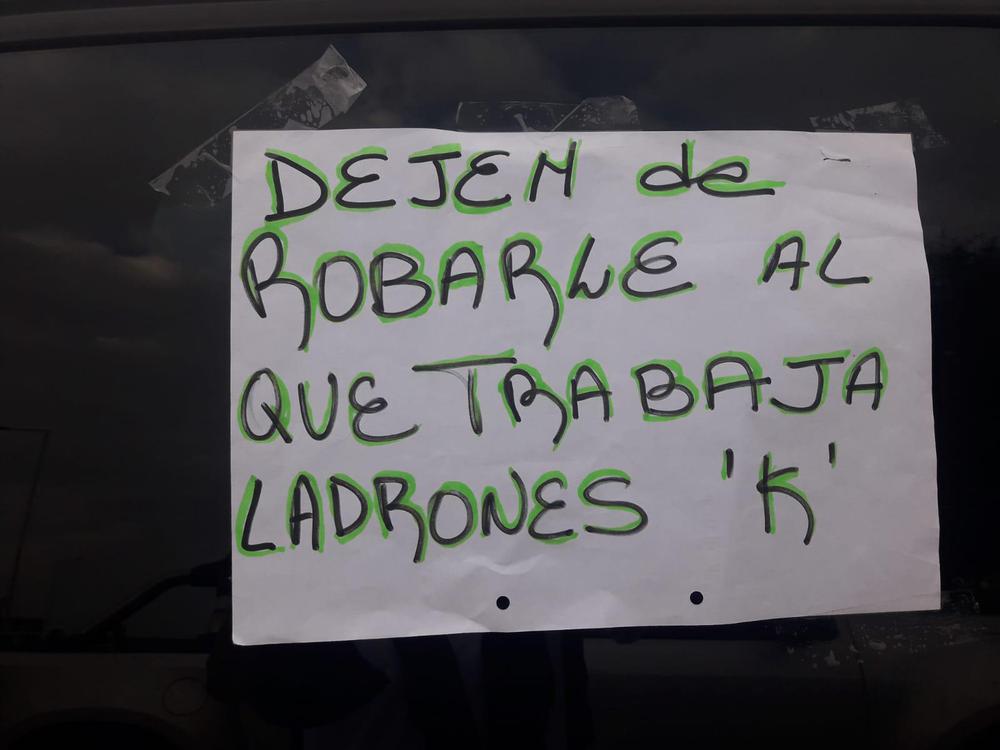 DEJEN de
ROBARLE AL
QUE TRABAJA
LADRONES 'K'